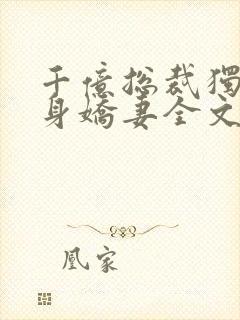 千億総裁獨
身嬌妻全文
凰家